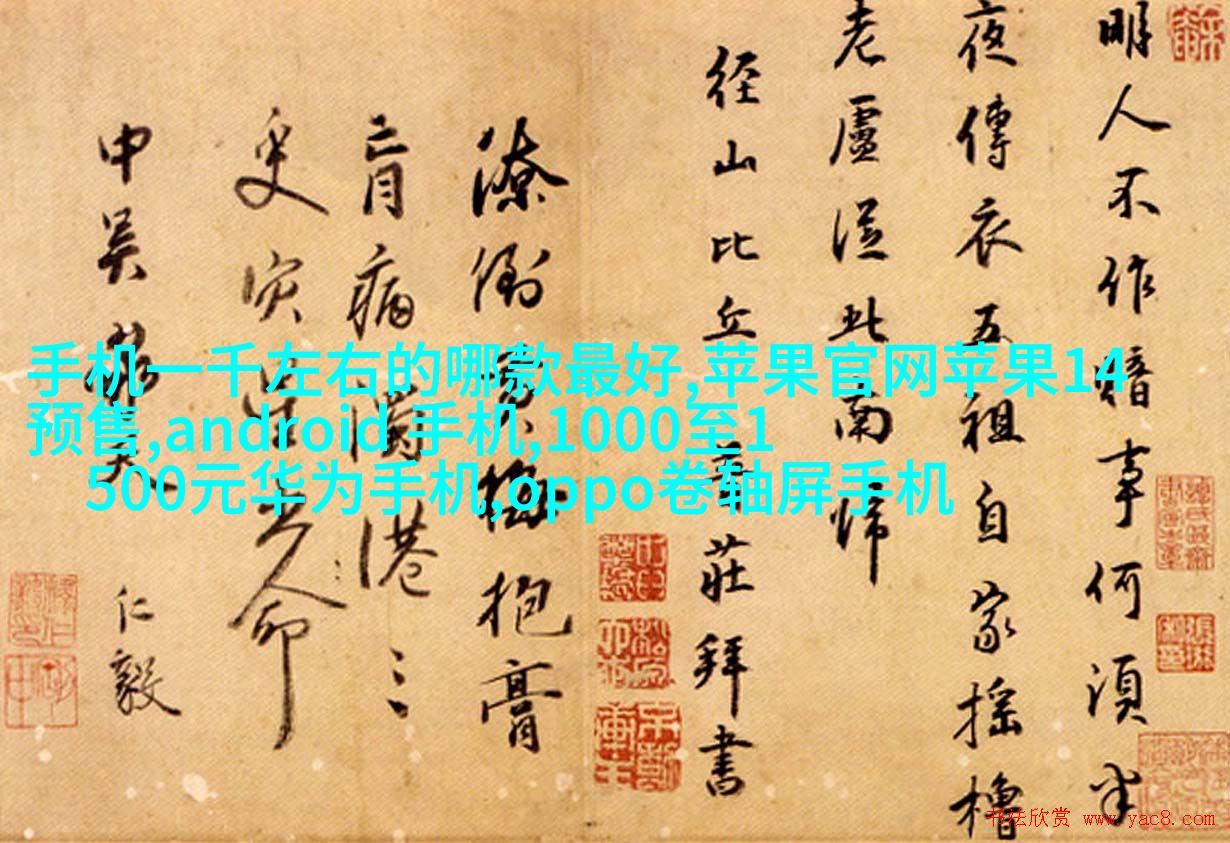 手机一千左右的哪款最好,苹果官网苹果14
预售,android 手机,1000至1
500元华为手机,oppo卷轴屏手机
明人不作暗事何須半
夜傳衣五祖自家搖櫓
老盧從此南歸
径山比丘莊拜書
潦倒黄梅抱膏
肓病濁港
人命
申吴
仁毅
书法欣赏 www.yac8.com